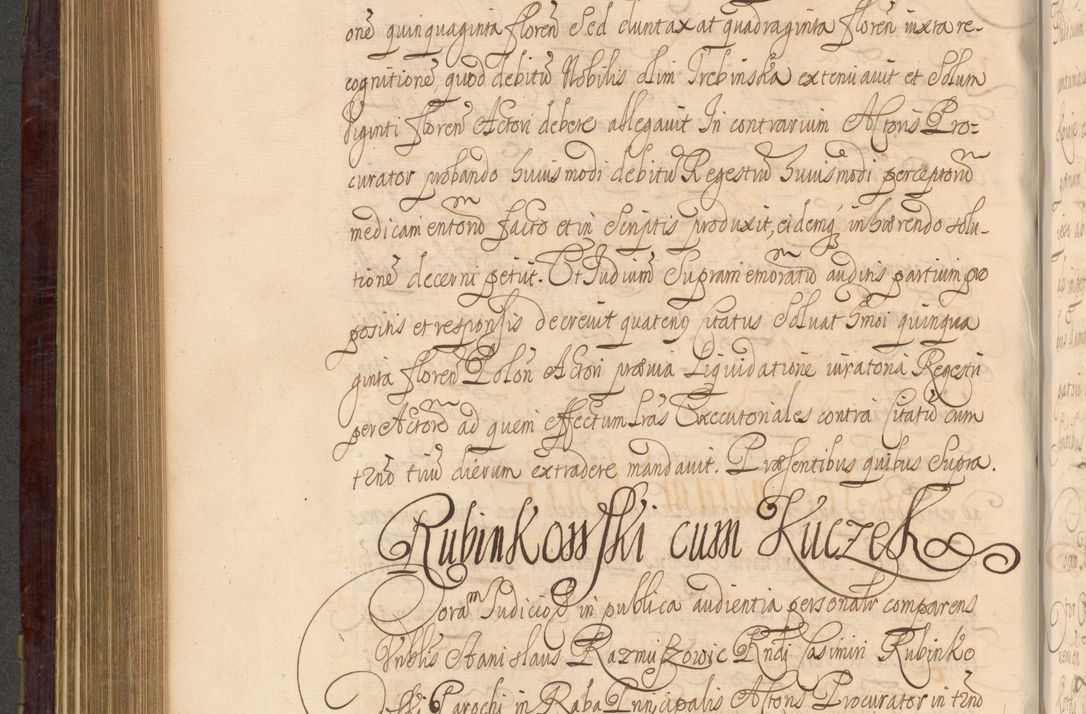 onē quinquaginta florēn Sed duntaxat quadraginta florēn iuxta re-
cognitionē, quod debitū Nobilis olim Trebinska extenuauit et Solum
Viginti florēn Actori debere allegauit In contrarium Actoris Pro-
curator probando huiusmodi debitū Regestrū huiusmodi perceptorū
medicamentorū facto et in Scriptis produxit, eidemq, inhærendo solu-
tionē decerni petiit. Et Iudiciū Supramemoratū auditis partium pro
positis et responsis decreuit quatenq Citatus Soluat hmoi quinqua
ginta florēn Polōn Actori prævia Liquidatione iuratoria Regestri
per Actorē ad quem effectum Lras Executoriales contra Citatū cum
tēno triū dierum extradere mandauit. Præsentibus quibus Supra.
Rubinkowski cum Kuczek
Coram Iudicio in publica audientia personalr comparens
Nblis Stanislaus Razmuszowic Rndi Casimiri Rubinko
wski Parochi in Raba Principalis Actoris Procurator in tēno